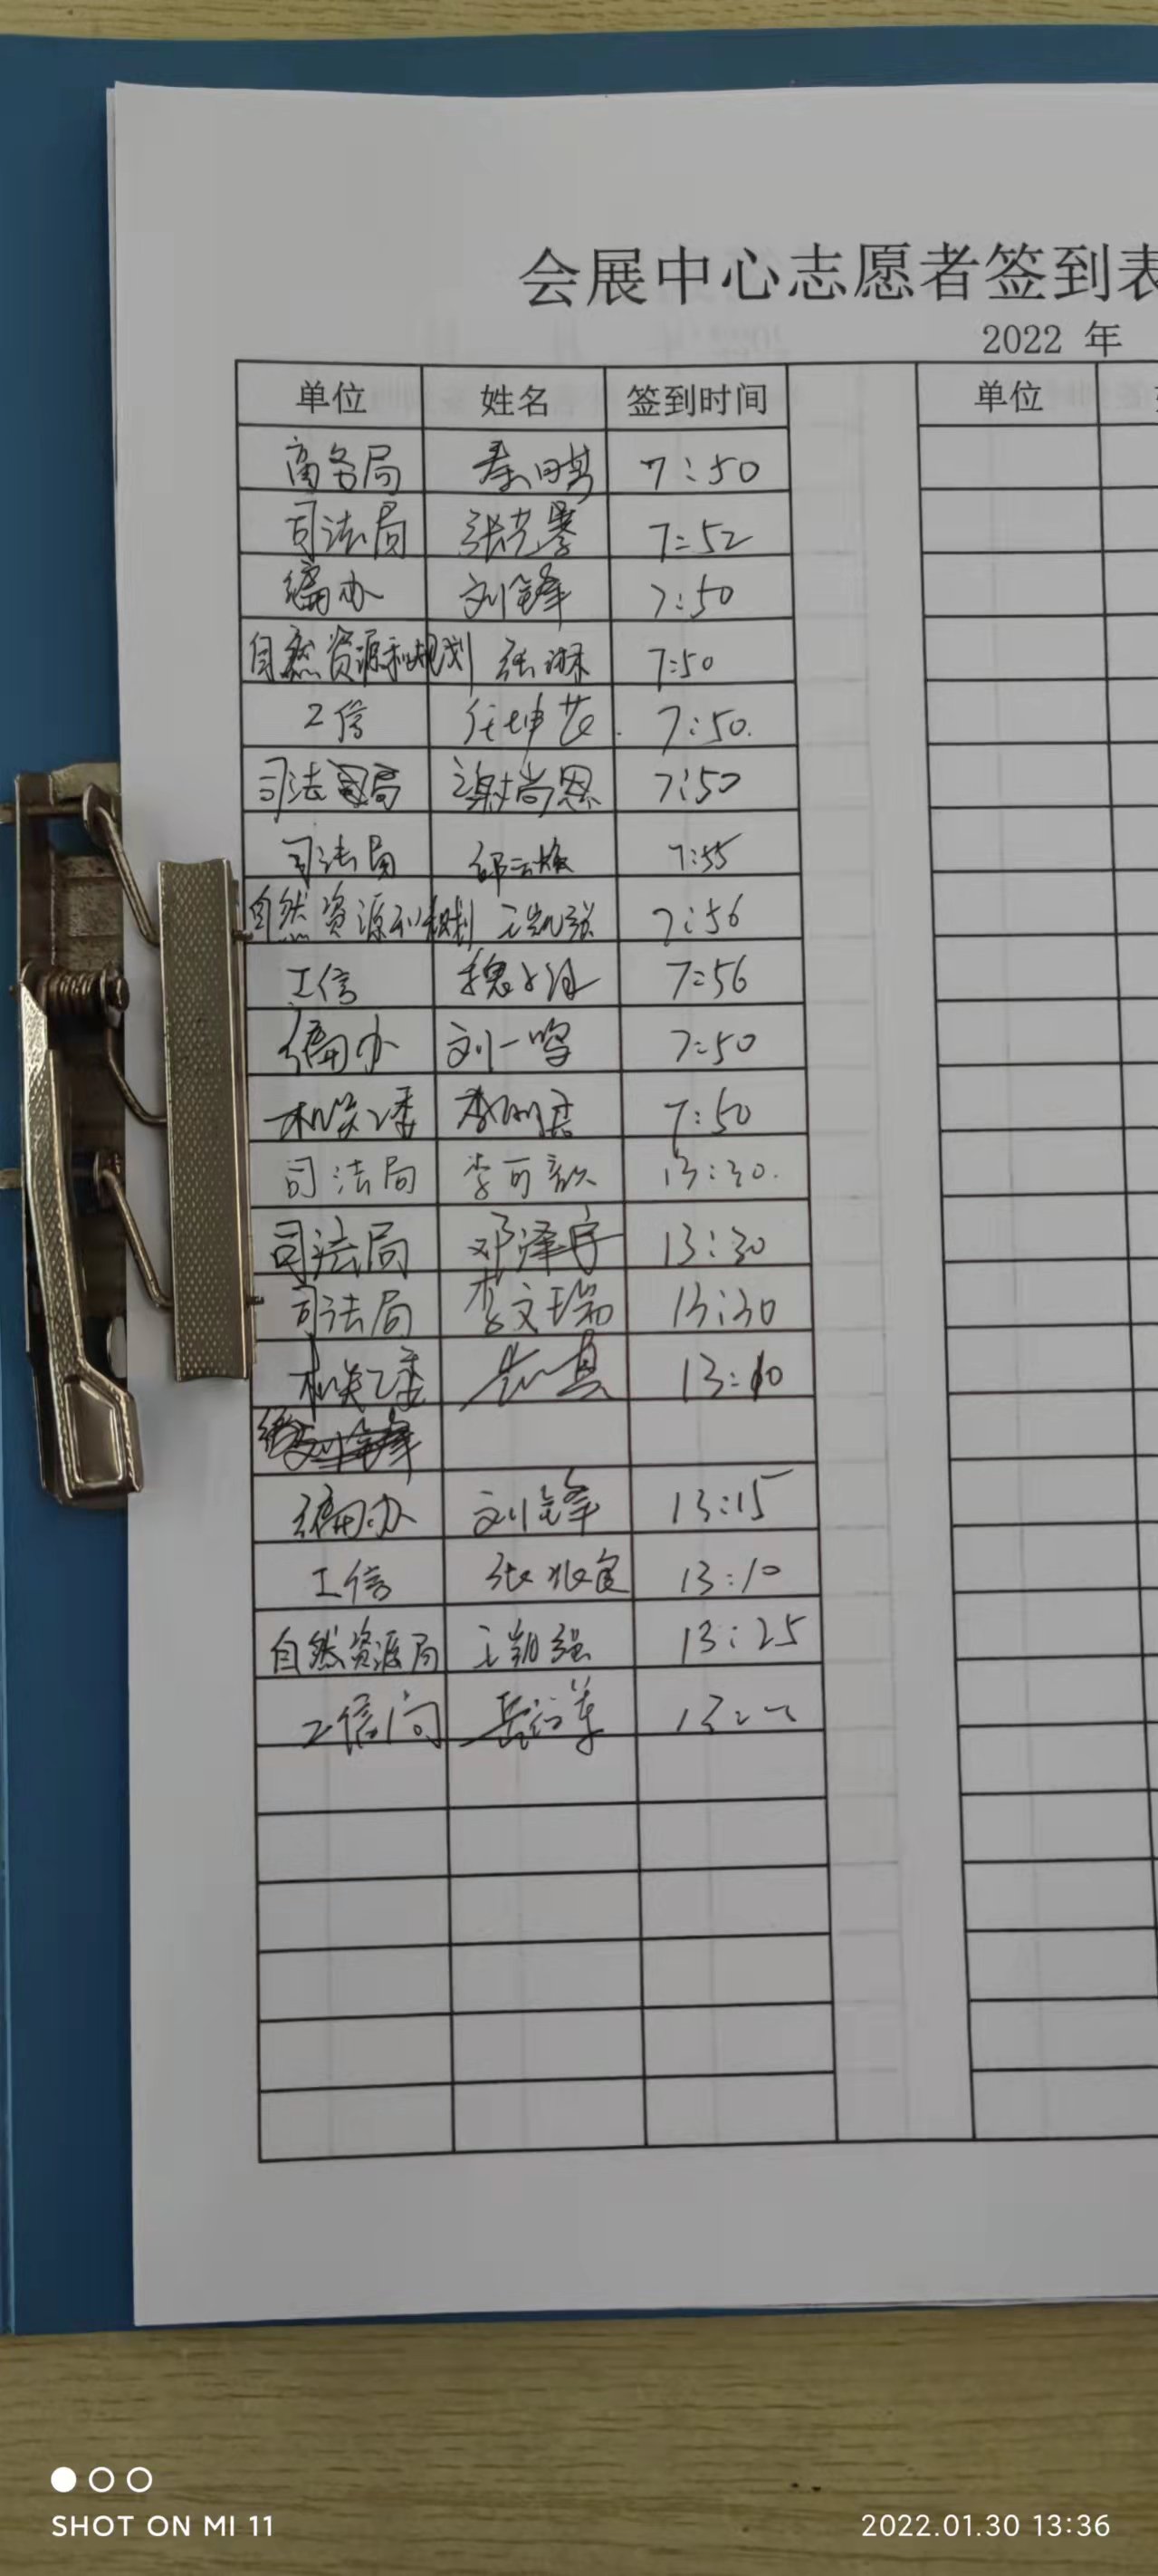 会展中心志愿者签到表
2022 年
单位 姓名 签到时间 单位
商务局 秦明其 7:50
司法局 张艺馨 7:52
编办 刘锋 7:50
自然资源和规划 张琳 7:50
工信 任坤艺 7:50.
司法局 谢尚恩 7:50
司法局 7:55
自然资源和规划 王凯强 7:56
工信 魏 7:56
编办 刘一鸣 7:50
机关工委 7:50
司法局 李可歆 13:30.
司法局 邓泽宇 13:30
司法局 李文瑞 13:30
机关工委 13:10
编办 刘锋 13:15
工信 张兆良 13:10
自然资源局 王凯强 13:25
工信局 13:
SHOT ON MI 11
2022.01.30 13:36